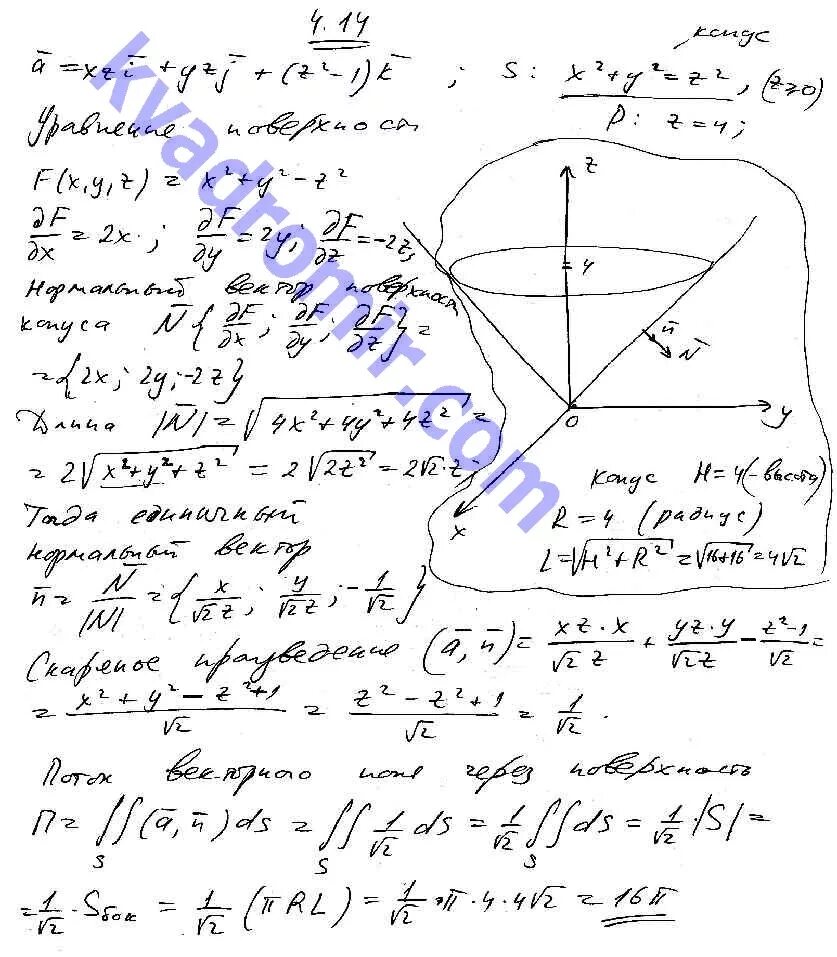 4.14
ā = xz ī + yz j̄ + (z² - 1) k̄ ; S: x² + y² = z², (z ≥ 0)
конус
P: z = 4;
Уравнение поверхности
F(x, y, z) = x² + y² - z²
∂F/∂x = 2x; ∂F/∂y = 2y; ∂F/∂z = -2z,
Нормальный вектор поверхности
конуса N̄ {∂F/∂x; ∂F/∂y; ∂F/∂z} =
= {2x; 2y; -2z}
Длина |N̄| = √(4x² + 4y² + 4z²) =
= 2√(x² + y² + z²) = 2√(2z²) = 2√2·z
Тогда единичный
нормальный вектор
n̄ = N̄/|N̄| = {x/(√2 z); y/(√2 z); -1/√2}
z
4
n̄
N̄
0
y
x
конус H = 4 (-высота)
R = 4 (радиус)
L = √(H² + R²) = √(16+16) = 4√2
Скалярное произведение (ā, n̄) = (xz·x)/(√2 z) + (yz·y)/(√2 z) - (z² - 1)/√2 =
= (x² + y² - z² + 1)/√2 = (z² - z² + 1)/√2 = 1/√2.
Поток векторного поля через поверхность
П = ∬_S (ā, n̄) ds = ∬_S 1/√2 ds = 1/√2 ∬_S ds = 1/√2·|S| =
= 1/√2 · S бок = 1/√2 (πRL) = 1/√2 · π · 4 · 4√2 = 16π
kvadromir.com